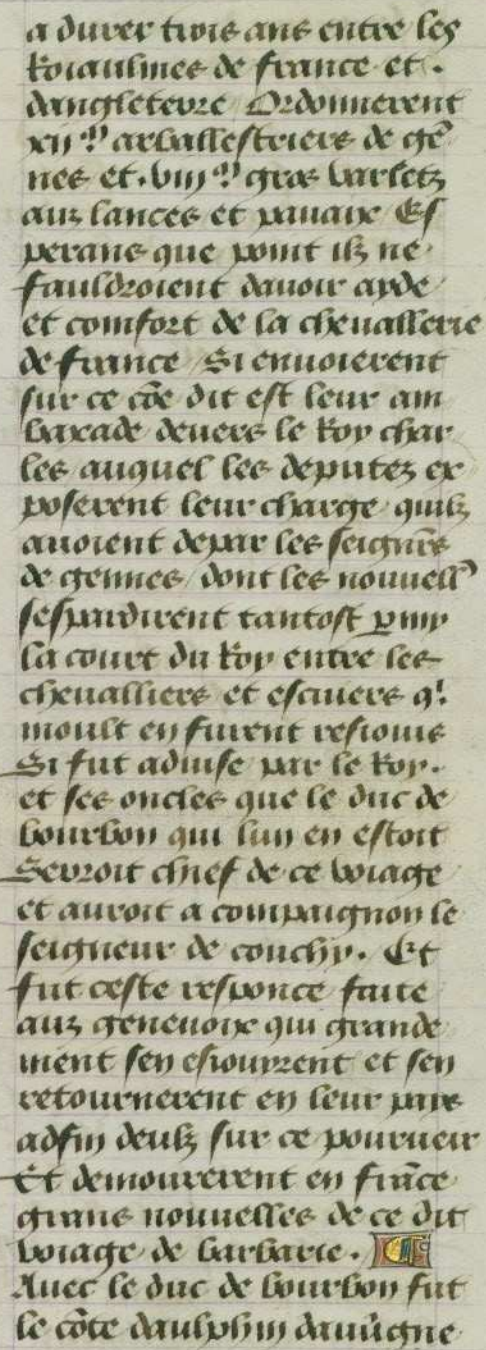 a durer trois ans entre les
Roiaulmes de france et .
dangleterre Ordonnerent
xij .M. arballestriers de gē
nes et . viij .M. gros varletz
aux lances et pavaix Es
perans que point ilz ne
fauldroient davoir ayde
et comfort de la chevallerie
de france Si envoierent
sur ce cōe dit est leur am
baxade devers le Roy char
les auquel les deputez ex
poserent leur charge quilz
avoient depar les seigneũs
de gennes / dont les nouvell'
sespandirent tantost ꝑmy
la court du Roy entre les
chevalliers et escuiers qⁱ
moult en furent resiouis
Si fut advise par le Roy .
et ses oncles que le duc de
bourbon qui lun en estoit
Seroit chief de ce voiage
et auroit a compaignon le
seigneur de couchy . Et
fut ceste responce faite
aux genevois qui grande
ment sen esiouirent et sen
retournerent en leur pais
adfin deulz sur ce pourveir
Et demourerent en frāce
grans nouvelles de ce dit
voiage de barbarie .
Avec le duc de bourbon fut
le cōte daulphin dauv̄gne